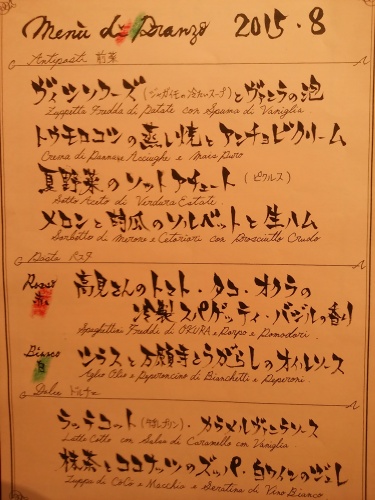 Menù di Pranzo 2015・8
Antipasti 前菜
ヴィシソワーズ(ジャガイモの冷たいスープ)とヴァニラの泡
Zuppetta Fredda di Patate con Spuma di Vaniglia
トウモロコシの蒸し焼とアンチョビクリーム
Crema di Acciughe e Mais Puro
夏野菜のソットアチェート(ピクルス)
Sotto Aceto di Verdura Estate
メロンと胡瓜のソルベットと生ハム
Sorbetto di Merone e Cetoriori con Prosciutto Crudo
Pasta パスタ
Rosso 赤 高見さんのトマト・タコ・オクラの
冷製スパゲッティ・バジルの香り
Spaghettini Freddo di OKURA e Porpo e Pomodori
Bianco 白 シラスと万願寺とうがらしのオイルソース
Aglio Olio e Peperoncino di Bianchetti e Peperoni
Dolce ドルチェ
ラッテコット(牛乳プリン)・カラメルヴァニラソース
Latte Cotto con Salsa di Caramello con Vaniglia
抹茶とココナッツのズッパ・白ワインのジュレ
Zuppa di Coco e Macchio e Geratina di Vino Bianco